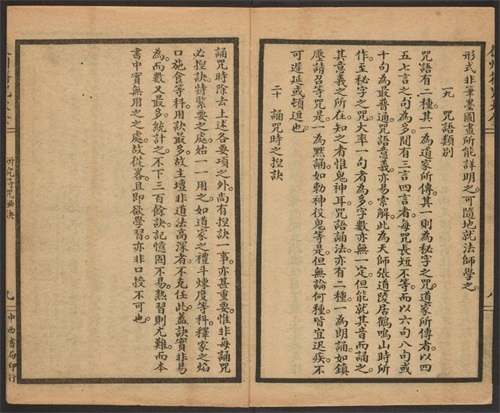 形式非筆墨圖畫所能詳明之可隨地就法師學之
九 咒語類別
咒語有二種其一為道家所傳其一則為秘字之咒道家所傳者以四
五七言之句為多間有二言四言者每咒長短不等而以六句八句或
十句為最普通咒語意義亦易索解此為天師張道陵居鶴鳴山時所
作至秘字之咒大率一句者為多字數亦無一定但能就其音而誦之
其意義之所在知之者惟鬼神耳咒語誦法亦有二種一為朗誦如鎮
壓請召等咒是一為默誦如勅神役鬼等是但無論何種皆宜迅疾不
可遲延或頓迫也
二十 誦咒時之揑訣
誦咒時除去上述各要項之外尚有揑訣一事亦甚重要惟非每誦咒
必揑訣詩緊要之處始一一用之如道家之禮斗煉度等科釋家之焰
口施食等科用訣最多故主壇非道法高深者不克任此蓋訣實非易
為而數又最多統計之不下三百餘訣記憶固不易熟習則尤難而本
書中實無用之之處故從畧且即欲學習亦非口授不可也
研究符咒秘訣
九
中西書局印行